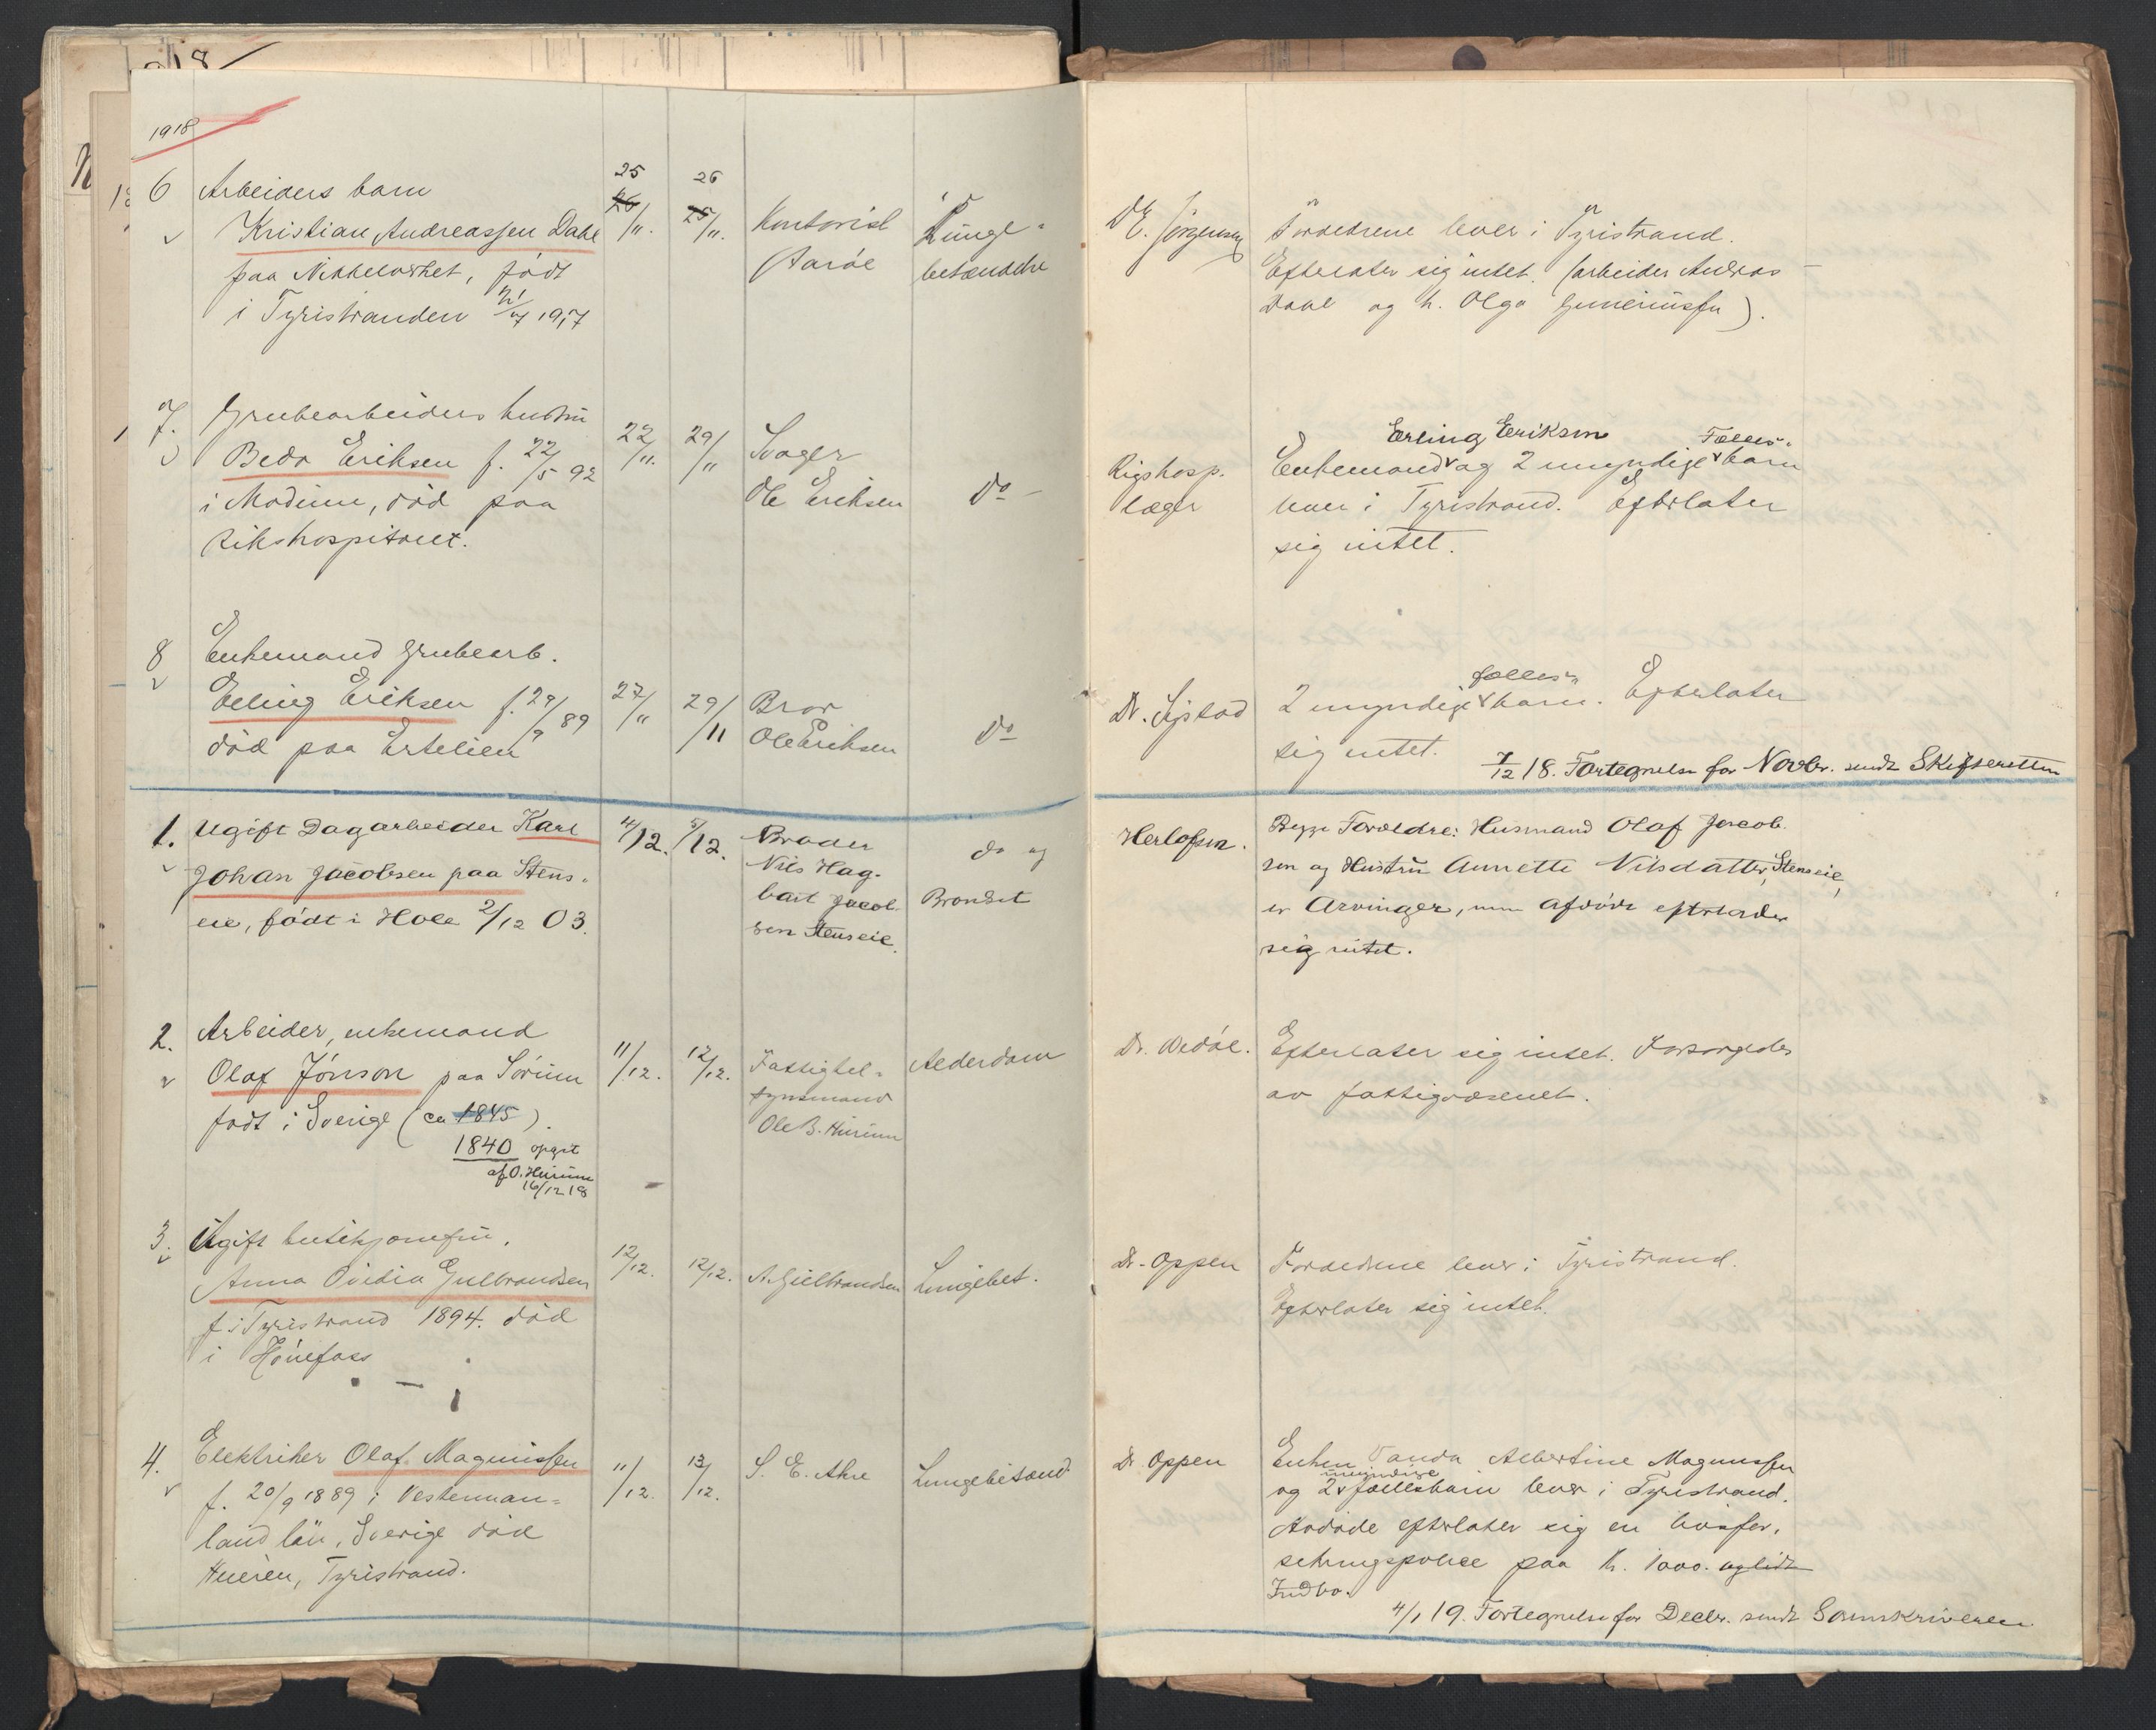 1918
6 Arbeiders barn
Kristian Andreassen Dahl
paa Nikkelverket, født
i Tyristranden 21/7 1917
25 26/11.
26 25/11.
Kontorist
Aarøe
Lunge-
betændelse
Dr. E. Jørgensen
Forældrene lever i Tyristrand.
Efterlater sig intet. (arbeider Andreas
Dahl og h. Olga
7. Grubearbeiders hustru
Beda Eriksen f. 22/5 92
i Modum, død paa
Rikshospitalet.
22/11.
29/11
Svager
Ole Eriksen
Do
Rigshosp.
læger
Erling Eriksen Fælles-
Enkemand og 2 umyndige barn
lever i Tyristrand. Efterlater
sig intet.
8 Enkemand grubearb.
Erling Eriksen f. 29/9 89
død paa Ertelien
27/11
29/11
Bror
Ole Eriksen
Do
Dr.
fælles-
2 umyndige barn. Efterlater
sig intet.
7/12 18. Fortegnelse for Novbr. sendt Skifteretten
1. Ugift Dagarbeider Karl
Johan Jacobsen paa Stens-
eie, født i Hole 2/12 03.
4/12.
5/12.
Broder
Nils Hag-
bart Jacob-
sen Stenseie.
do og
Bronkit
Herlofsen.
Begge Forældre: Husmand Olaf Jacob-
sen og Hustru Annette Nilsdatter, Stenseie,
er Arvinger, men afdøde efterlader
sig intet.
2. Arbeider, enkemand
Olaf Jönson paa Sørum
født i Sverige (ca 1845).
1840 opgit
af O. Hurum
16/12 18
11/12.
12/12.
Fattigtil-
synsmand
Ole B. Hurum
Alderdom
Dr.
Efterlater sig intet. Forsørgedes
av fattigvæsenet.
3. Ugift butikjomfru.
Anna Ovidia Gulbrandsen
f. i Tyristrand 1894. død
i Hønefoss
12/12.
12/12.
A. Gulbrandsen
Lungebet.
Dr. Oppen
Forældrene lever i Tyristrand.
Efterlater sig intet.
4. Elektriker Olaf Magnussen
f. 20/9 1889 i Vesterman-
land län, Sverige død
Tyristrand.
11/12.
13/12.
S. E. Ahre
Lungebetænd.
Dr Oppen
Enken Vanda Albertine Magnussen
umyndige
og 2 fællesbarn lever i Tyristrand.
Avdøde efterlater sig en livsfor-
sikringspolice paa kr. 1000. og lidt
Indbo.
4/1 19. Fortegnelse for Decbr. sendt Sorenskriveren